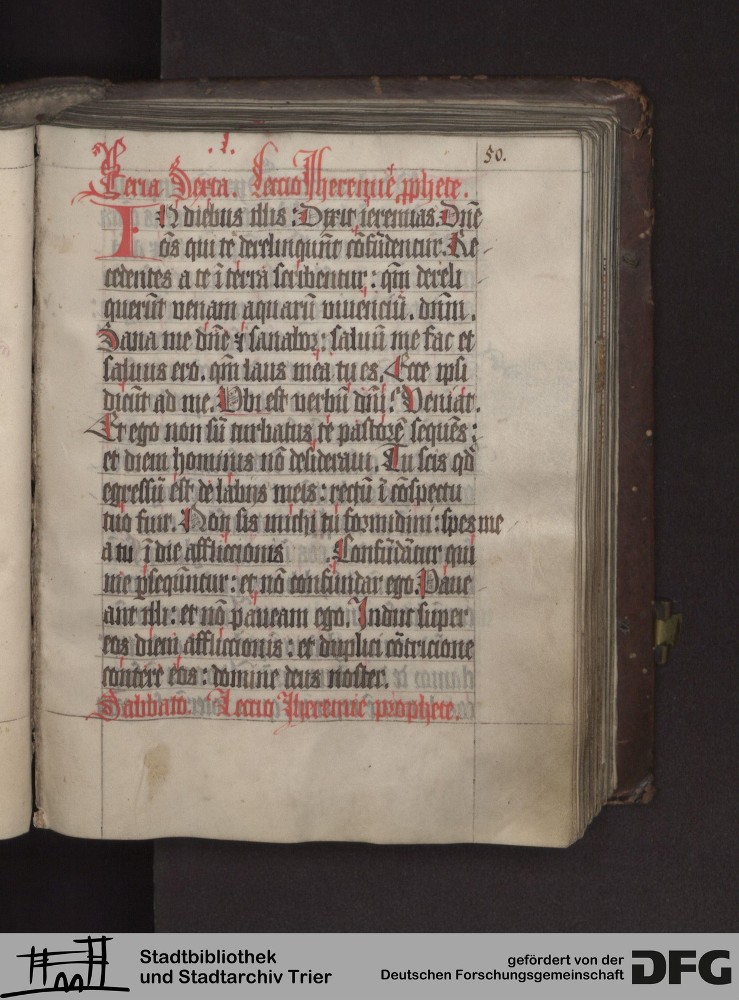 .i.
50.
Feria Sexta. Lectio Iheremie pphete.
IN diebus illis: Dixit ieremias. Dñe
oẽs qui te derelinquũt cõfũdentur. Re
cedentes a te ĩ terra scribentur: qm̃ dereli
querũt venam aquarũ viuenciũ. dnm̃.
Sana me dñe & sanabor: saluũ me fac et
saluus ero. qm̃ laus mea tu es. Ecce ipsi
dicũt ad me. Vbi est verbũ dñi? Veniat.
Et ego non sũ turbatus te pastorẽ sequẽs:
et diem hominis nõ desideraui. Tu scis qd̃
egressũ est de labijs meis: rectũ ĩ cõspectu
tuo fuit. Non sis michi tu formidini: spes me
a tu ĩ die affliccionis. Confũdãtur qui
me ꝑsequũntur: et nõ confundar ego. Paue
ant illi: et nõ paueam ego. Induc super
eos diem affliccionis: et duplici cõtricione
contere eos: domine deus noster.
Sabbato. Lectio Iheremie prophete.
Stadtbibliothek
und Stadtarchiv Trier
gefördert von der
Deutschen Forschungsgemeinschaft
DFG